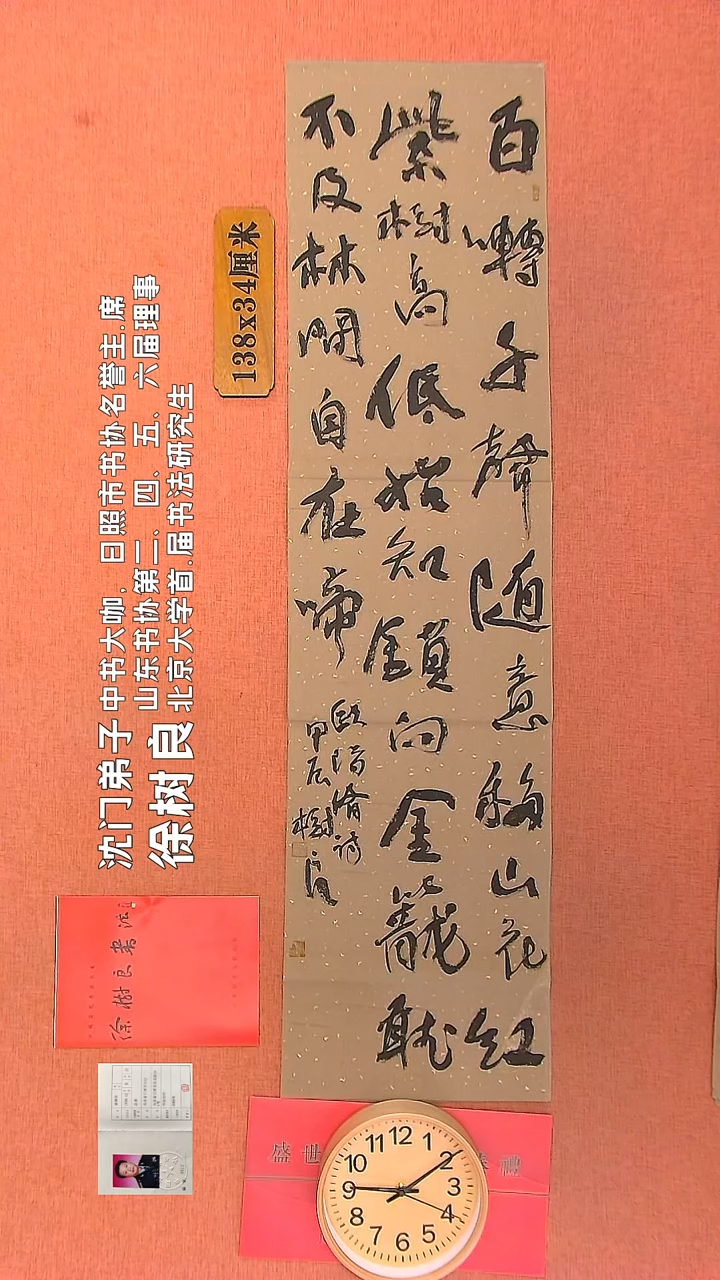 百囀千聲隨意移山花紅
紫樹高低始知鎖向金籠聽
不及林間自在啼
歐陽脩詩
甲辰樹良
138x34厘米
沈门弟子 中书大咖，日照市书协名誉主.席
山东书协第三、四、五、六届理事
徐树良 北京大学首.届书法研究生
徐樹良書法
盛世
12
1
2
3
4
5
6
7
8
9
10
11